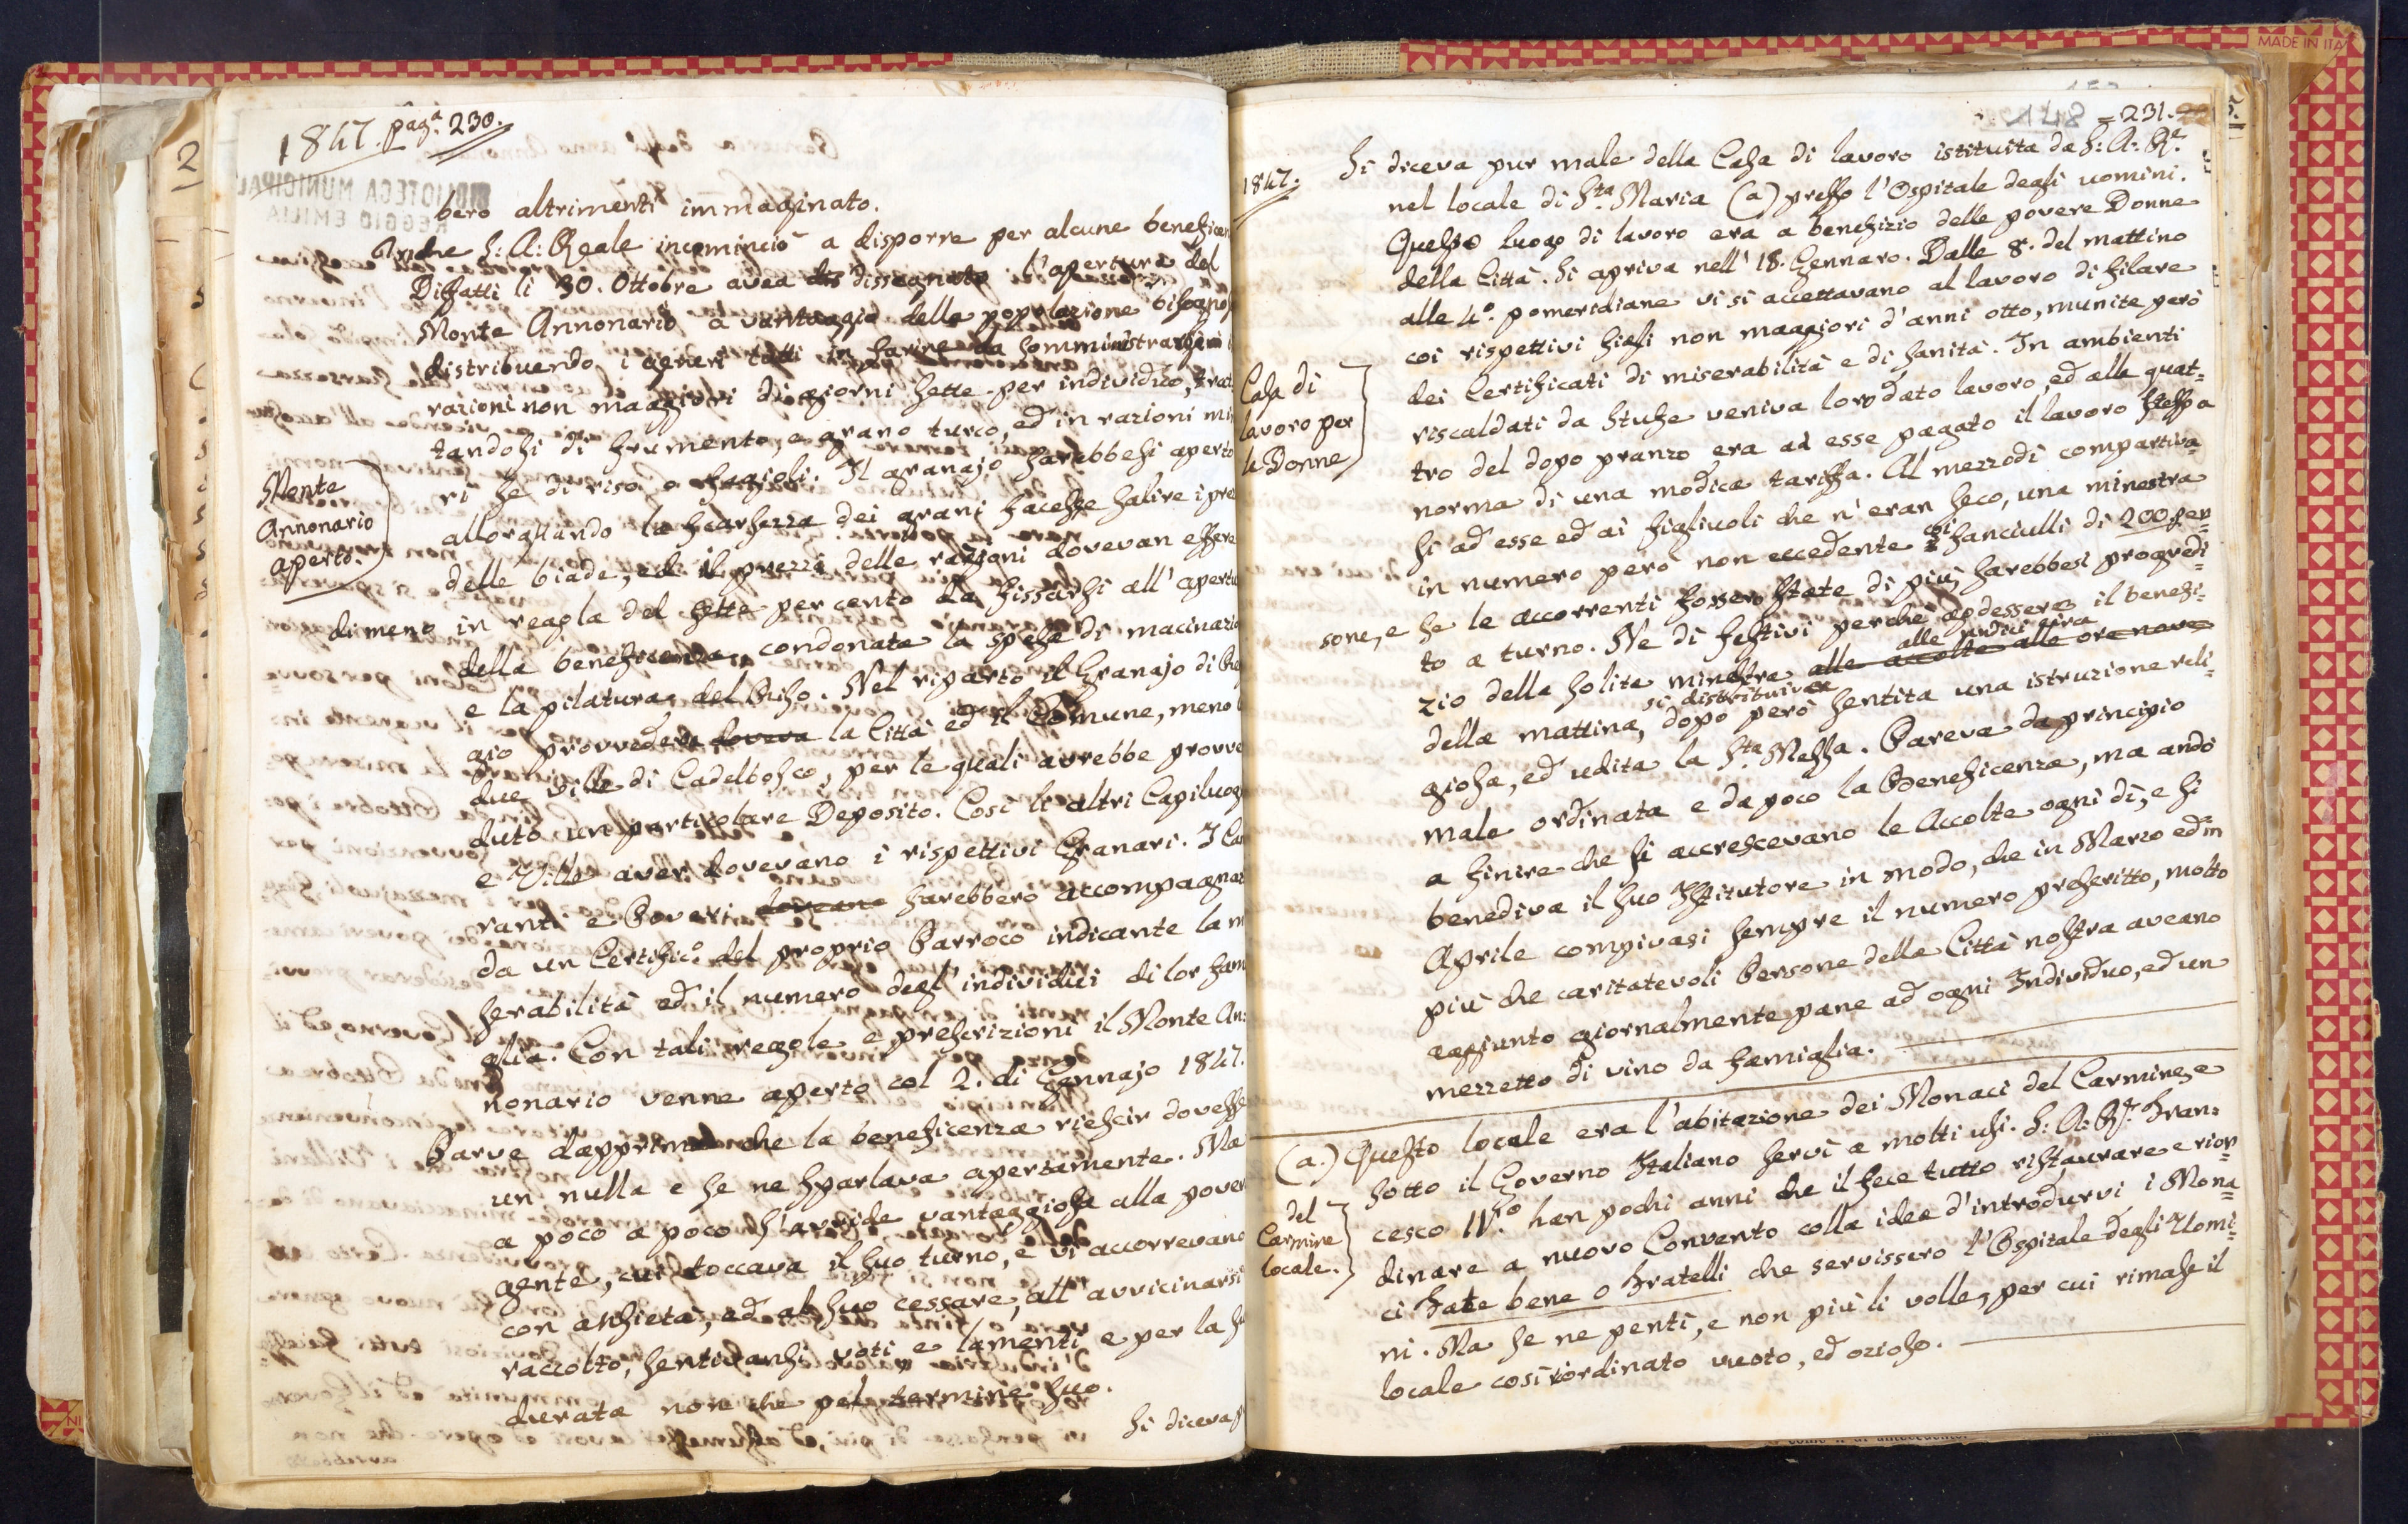 1847. pag.ª 230.
bero altrimenti immaginato.
Anche S: A: Reale incominciò a disporre per alcune beneficen
Diffatti li 30. Ottobre avea dissegnato l'apertura del
Monte Annonario a vantaggio della popolazione bisogno
distribuendo i generi tutti in farine da somministrarsi in
razioni non maggiori di giorni sette per individuo, trat
tandosi di frumento, e grano turco, ed in razioni mi
ri se di riso o fagioli. Il granajo sarebbesi aperto
allorquando la scarsezza dei grani facesse salire i pre
delle biade, ed il prezzi delle razioni dovevan essere
di meno in regola del sette per cento da fissarsi all' apertu
della beneficenza, condonata la spesa di macinazio
e la pilatura del Riso. Nel riparto il Granajo di Reg
gio provvedere doveva la Città ed il Comune, meno l
due ville di Cadelbosco, per le quali avrebbe provve
duto un particolare Deposito. Così li altri Capiluog
e Ville aver dovevano i rispettivi Granari. I
ranti e Poveri doveano sarebbero accompagnat
da un Certific.º del proprio Parroco indicante la m
serabilità ed il numero degl' individui di lor fam
glia. Con tali regole e prescrizioni il Monte An:
nonario venne aperto col 2. di Gennajo 1847.
Parve dapprima che la beneficenza riescir dovesse
un nulla e se ne sparlava apertamente. Ma
a poco a poco s'avvide vantaggiosa alla pover
gente, cui toccava il suo turno, e vi accorrevano
con ansietà, ed al suo cessare, all' avvicinarsi
raccolto, sentivansi voti e lamenti e per la su
durata non che pel termine suo.
Si diceva p
Monte
Annonario
aperto.
= 231.
1847.
Si diceva pur male della Casa di lavoro istituita da S: A: R.e
nel locale di S.ta Maria (a) presso l'Ospitale degli uomini.
Questo luogo di lavoro era a benefizio delle povere Donne
della Città. Si apriva nell' 18. Gennaro. Dalle 8. del mattino
alle 4.º pomeridiane vi si accettavano al lavoro di filare
coi rispettivi figli non maggiori d'anni otto, munite però
dei Certificati di miserabilità e di sanità. In ambienti
riscaldati da stufe veniva loro dato lavoro, ed alle quat=
tro del dopo pranzo era ad esse pagato il lavoro stesso a
norma di una modica tariffa. Al mezzodì compartiva=
si ad esse ed ai figliuoli che n' eran seco, una minestra
in numero però non eccedente coi fanciulli di 200 per=
sone, e se le accorrenti fossero state di più, sarebbesi progredi=
to a turno. Ne dì festivi perchè godessero il benefi=
alle undici ora
zio della solita minestra alle accolte alle ore nove
si distribuiva
della mattina, dopo però sentita una istruzione reli=
giosa, ed udita la S.ta Messa. Pareva da principio
male ordinata e da poco la Beneficenza, ma andò
a finire che si accrescevano le Accolte ogni dì, e si
benediva il suo Istitutore in modo, che in Marzo ed in
Aprile compivasi sempre il numero preferitto, molto
più che caritatevoli Persone della Città nostra aveano
aggiunto giornalmente pane ad ogni Individuo, ed un
mezzetto di vino da famiglia.
Casa di
lavoro per
le Donne
(a.) Questo locale era l'abitazione dei Monaci del Carmine, e
sotto il Governo Italiano servì a molti usi. S: A: R.e Fran:
cesco IV.to san pochi anni che il fece tutto ristaurare e rior=
dinare a nuovo Convento colla idea d'introdurvi i Mona=
ci Fate bene o Fratelli che servissero l'Ospitale degli Uomi=
ni. Ma se ne pentì, e non più li volle, per cui rimase il
locale così riordinato vuoto, ed ozioso.
del
Carmine
locale.
MADE IN ITA